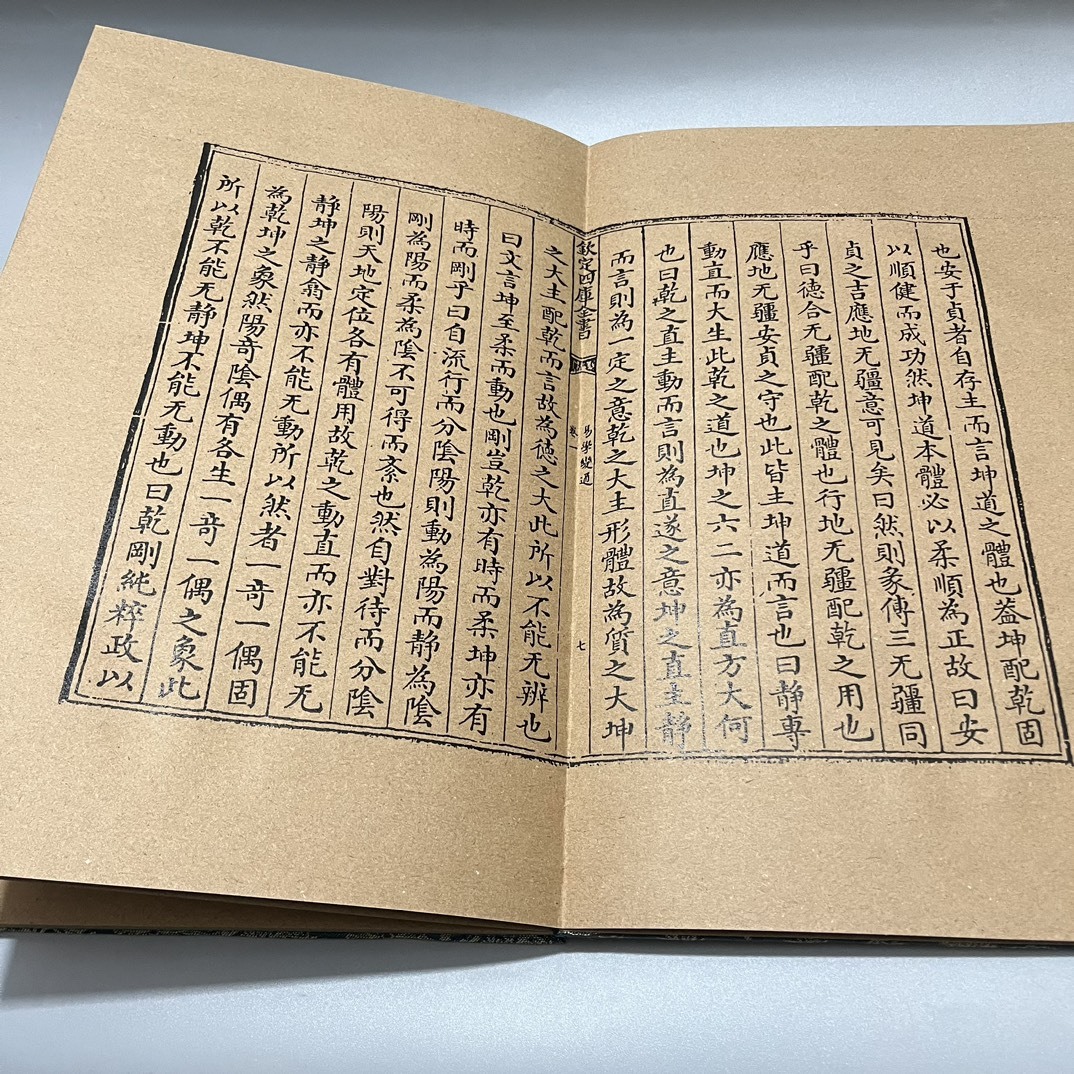 也安于貞者自存主而言坤道之體也葢坤配乾固
以順健而成功然坤道本體必以柔順為正故曰安
貞之吉應地无疆意可見矣曰然則彖傳三无疆同
乎曰德合无疆配乾之體也行地无疆配乾之用也
應地无疆安貞之守也此皆主坤道而言也曰静專
動直而大生此乾之道也坤之六二亦為直方大何
也曰乾之直主動而言則為直遂之意坤之直主静
而言則為一定之意乾之大主形體故為質之大坤
欽定四庫全書
易學變通
卷一
七
之大主配乾而言故為德之大此所以不能无辨也
曰文言坤至柔而動也剛豈乾亦有時而柔坤亦有
時而剛乎曰自流行而分陰陽則動為陽而静為陰
剛為陽而柔為陰不可得而紊也然自對待而分陰
陽則天地定位各有體用故乾之動直而亦不能无
静坤之静翕而亦不能无動所以然者一竒一偶固
為乾坤之象然陽竒陰偶有各生一竒一偶之象此
所以乾不能无静坤不能无動也曰乾剛純粹政以